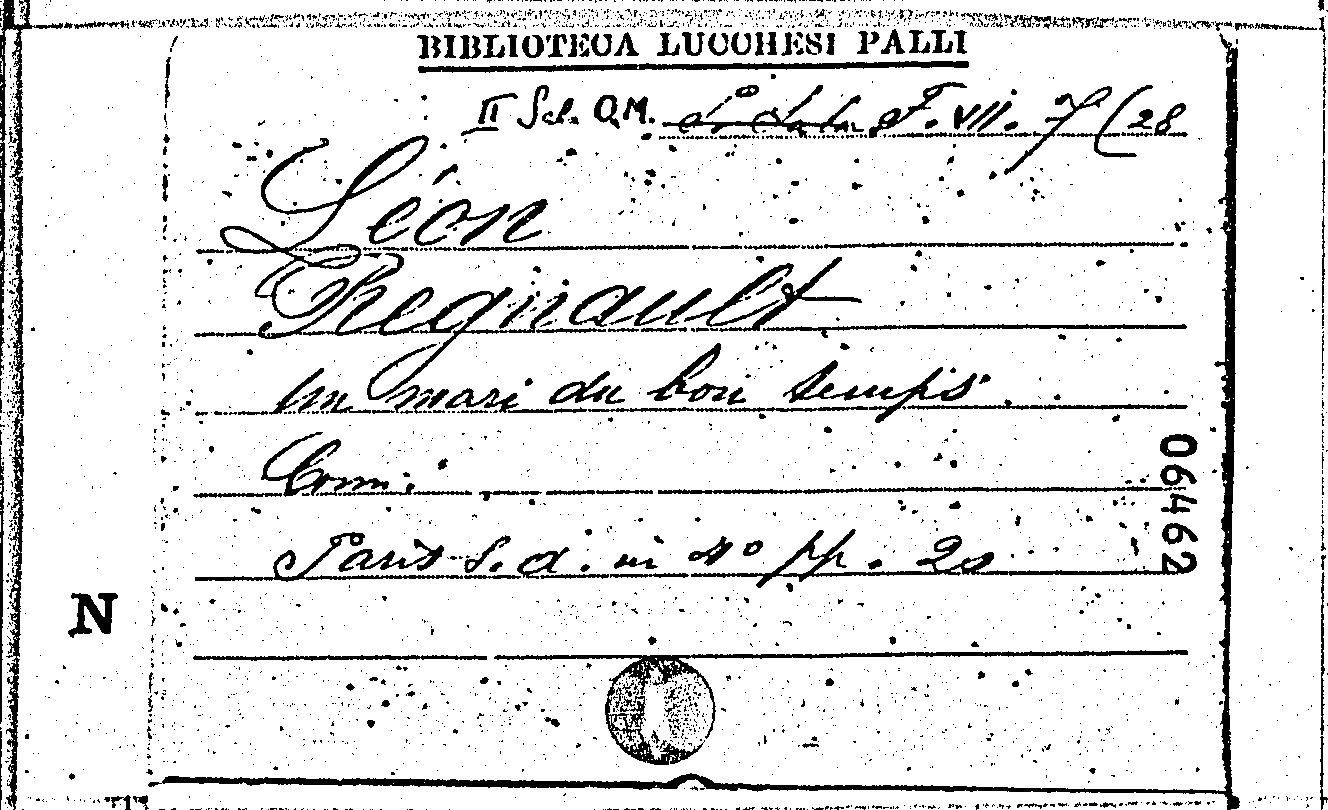 BIBLIOTECA LUCCHESI PALLI
II Sal. Q.M. F. VII. 7 (28
Léon
Regnault
Un mari du bon temps.
Com:
Paris s.d. in 4° pp. 20
06462
N